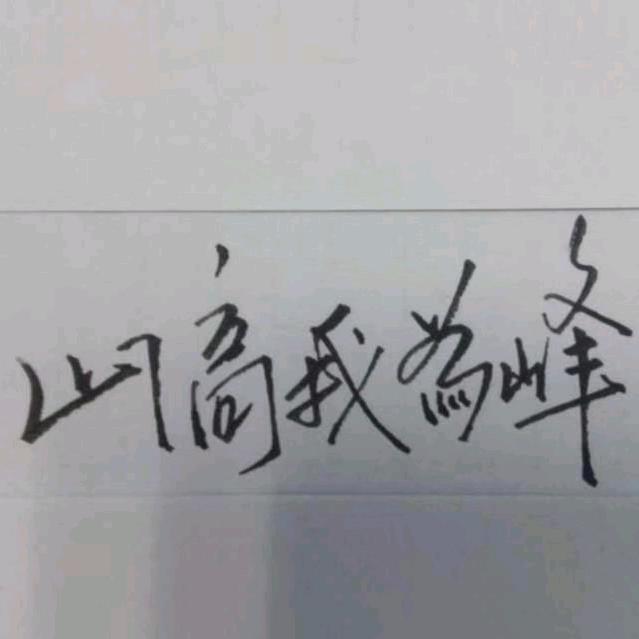 山高我為峰